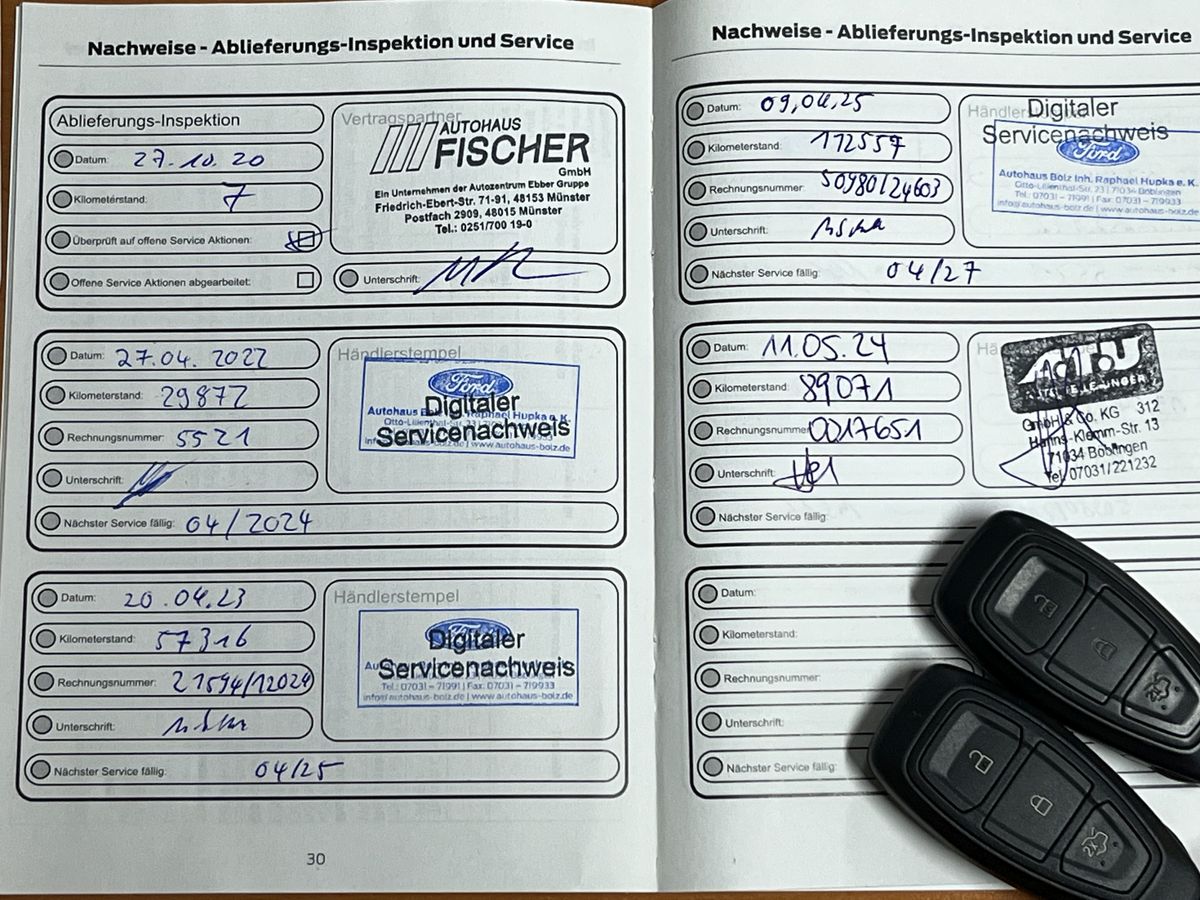 Nachweise - Ablieferungs-Inspektion und Service
Ablieferungs-Inspektion
Datum: 27.10.20
Kilometerstand: 7
Überprüft auf offene Service Aktionen:
Offene Service Aktionen abgearbeitet:
Vertragspartner
AUTOHAUS
FISCHER
GmbH
Ein Unternehmen der Autozentrum Ebber Gruppe
Friedrich-Ebert-Str. 71-91, 48153 Münster
Postfach 2909, 48015 Münster
Tel.: 0251/700 19-0
Unterschrift:
Datum: 27.04.2022
Kilometerstand: 29872
Rechnungsnummer: 5521
Unterschrift:
Nächster Service fällig: 04/2024
Händlerstempel
Ford
Digitaler
Servicenachweis
Autohaus Bolz Inh. Raphael Hupka e. K.
www.autohaus-bolz.de
Datum: 20.04.23
Kilometerstand: 57316
Rechnungsnummer: 21594/12024
Unterschrift:
Nächster Service fällig: 04/25
Händlerstempel
Digitaler
Servicenachweis
Tel.: 07031 – 71991 | Fax: 07031 – 719933
info@autohaus-bolz.de | www.autohaus-bolz.de
30
Nachweise - Ablieferungs-Inspektion und Service
Datum: 09.04.25
Kilometerstand: 112557
Rechnungsnummer: 50980/24603
Unterschrift:
Nächster Service fällig: 04/27
Digitaler
Servicenachweis
Ford
Autohaus Bolz Inh. Raphael Hupka e. K.
Otto-Lilienthal-Str. 23 | 71034 Böblingen
Tel.: 07031 – 71991 | Fax: 07031 – 719933
info@autohaus-bolz.de | www.autohaus-bolz.de
Datum: 11.05.24
Kilometerstand: 89071
Rechnungsnummer: 0017651
Unterschrift:
Nächster Service fällig:
GmbH & Co. KG 312
Hanns-Klemm-Str. 13
71034 Böblingen
Tel. 07031/221232
Datum:
Kilometerstand:
Rechnungsnummer:
Unterschrift:
Nächster Service fällig:
2x